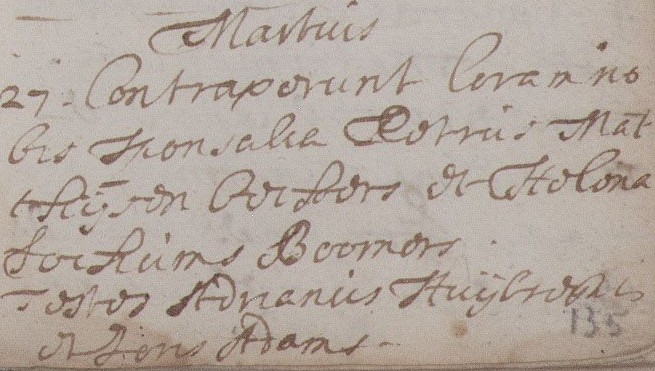 Martius
27. Contraxerunt Coram no
bis sponsalia Petrus Mat
thijsen et Helena
Jochums Boomers
Testes Adrianus Huijbrechts
et Jans Adams -
135